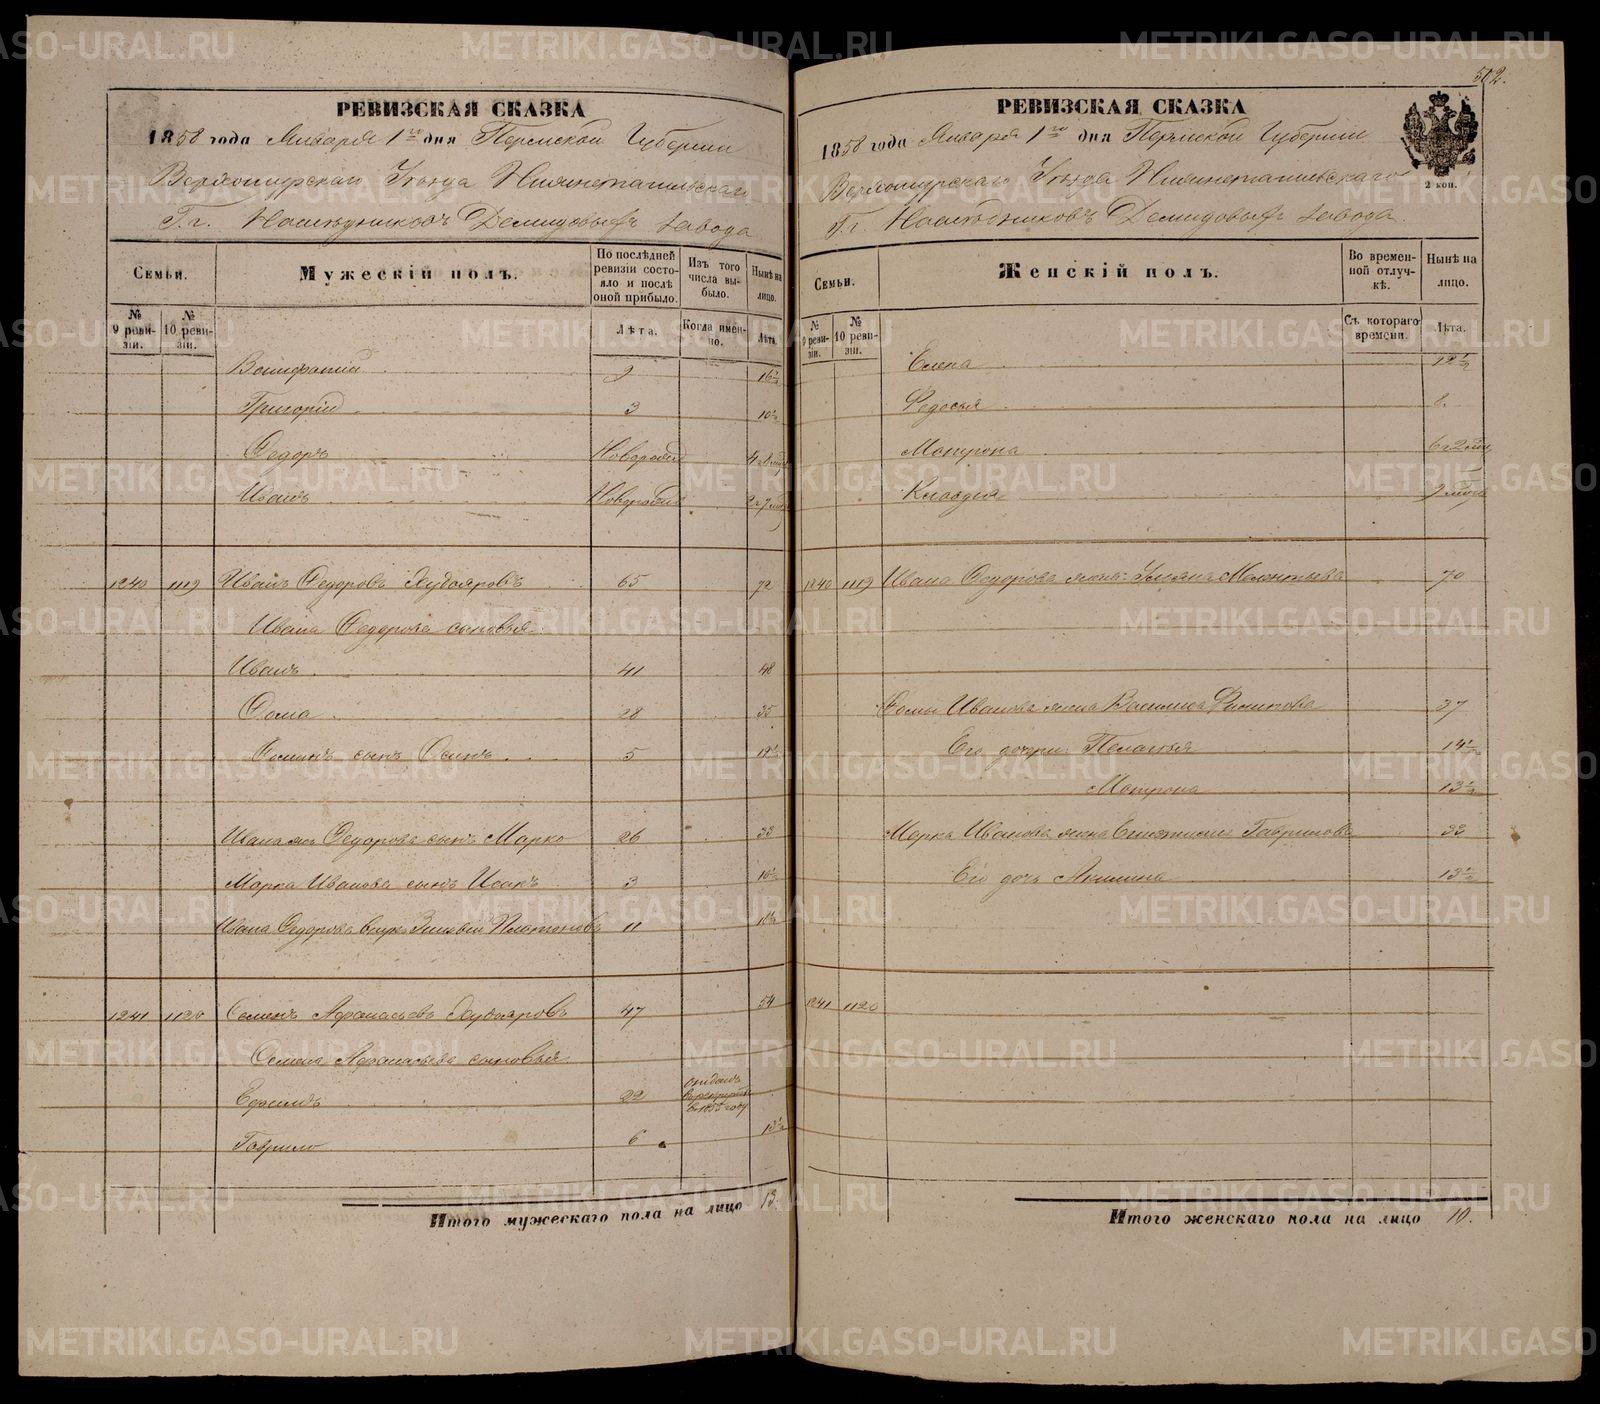 РЕВИЗСКАЯ СКАЗКА
1858 года Января 1го дня Пермской Губернии
Верхотурскаго Уезда Нижнетагильскаго
Г.г. Наследниковъ Демидовыхъ завода
Семьи.
Мужескій полъ.
По послѣдней ревизіи состояло и послѣ оной прибыло.
Изъ того числа выбыло.
Нынѣ на лицо.
№ 9 ревизіи.
№ 10 ревизіи.
Лѣта.
Когда именно.
Лѣта.
Вонифатий 9 16½
Григорій 3 10½
Федоръ Новорожд
Иванъ Новорожд
1240 1119 Иванъ Федоровъ Худояровъ 65 72
Ивана Федорова сыновья:
Иванъ 41 48
Фома 28 35
Фоминъ сынъ Осипъ 5 12½
Ивана же Федорова сынъ Марко 26 33
Марка Иванова сынъ Исакъ 3 10½
Ивана Федорова внукъ Платоновъ 11
1241 1120 Семенъ Афанасьевъ Худояровъ 47 54
Семена Афанасьева сыновья
Ефимъ 22 отданъ в рекруты в 1855 году
Гаврило 6 13½
Итого мужескаго пола на лицо 13.
502.
РЕВИЗСКАЯ СКАЗКА
1858 года Января 1го дня Пермской Губерніи
Верхотурскаго Уезда Нижнетагильскаго
Г.г. Наследниковъ Демидовыхъ завода.
2 коп.
Семьи.
Женскій полъ.
Во временной отлучкѣ.
Нынѣ на лицо.
№ 9 ревизіи.
№ 10 ревизіи.
Съ котораго времени.
Лѣта.
Елена 12½
Федосья 8.
Матрона
Клавдия
1240 1119 Ивана Федорова жена Ульяна Мелентьева 70
Фомы Иванова жена Василиса Филипова 37
Его дочери: Пелагья 14½
Матрона 13½
Марка Иванова жена Гаврилова 33
Его дочь Акилина 13½
1241 1120
Итого женскаго пола на лицо 10.
METRIKI.GASO-URAL.RU